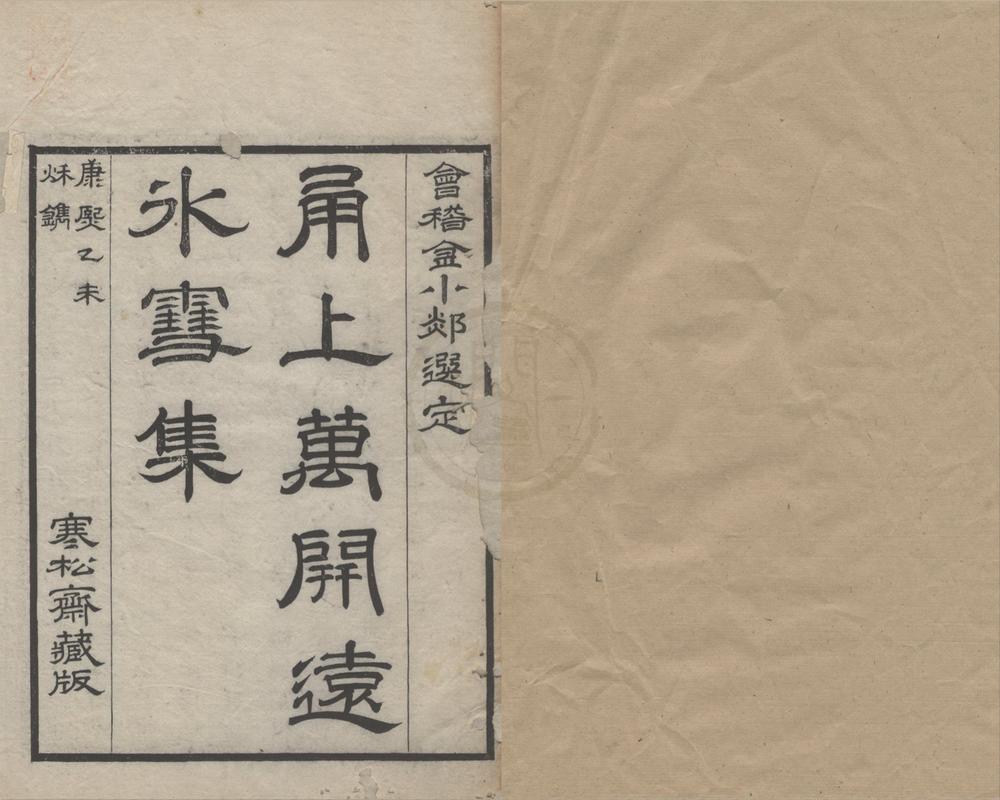 會稽金小郯選定
甬上萬開遠
氷雪集
康熙乙未
秌鐫
寒松齋藏版